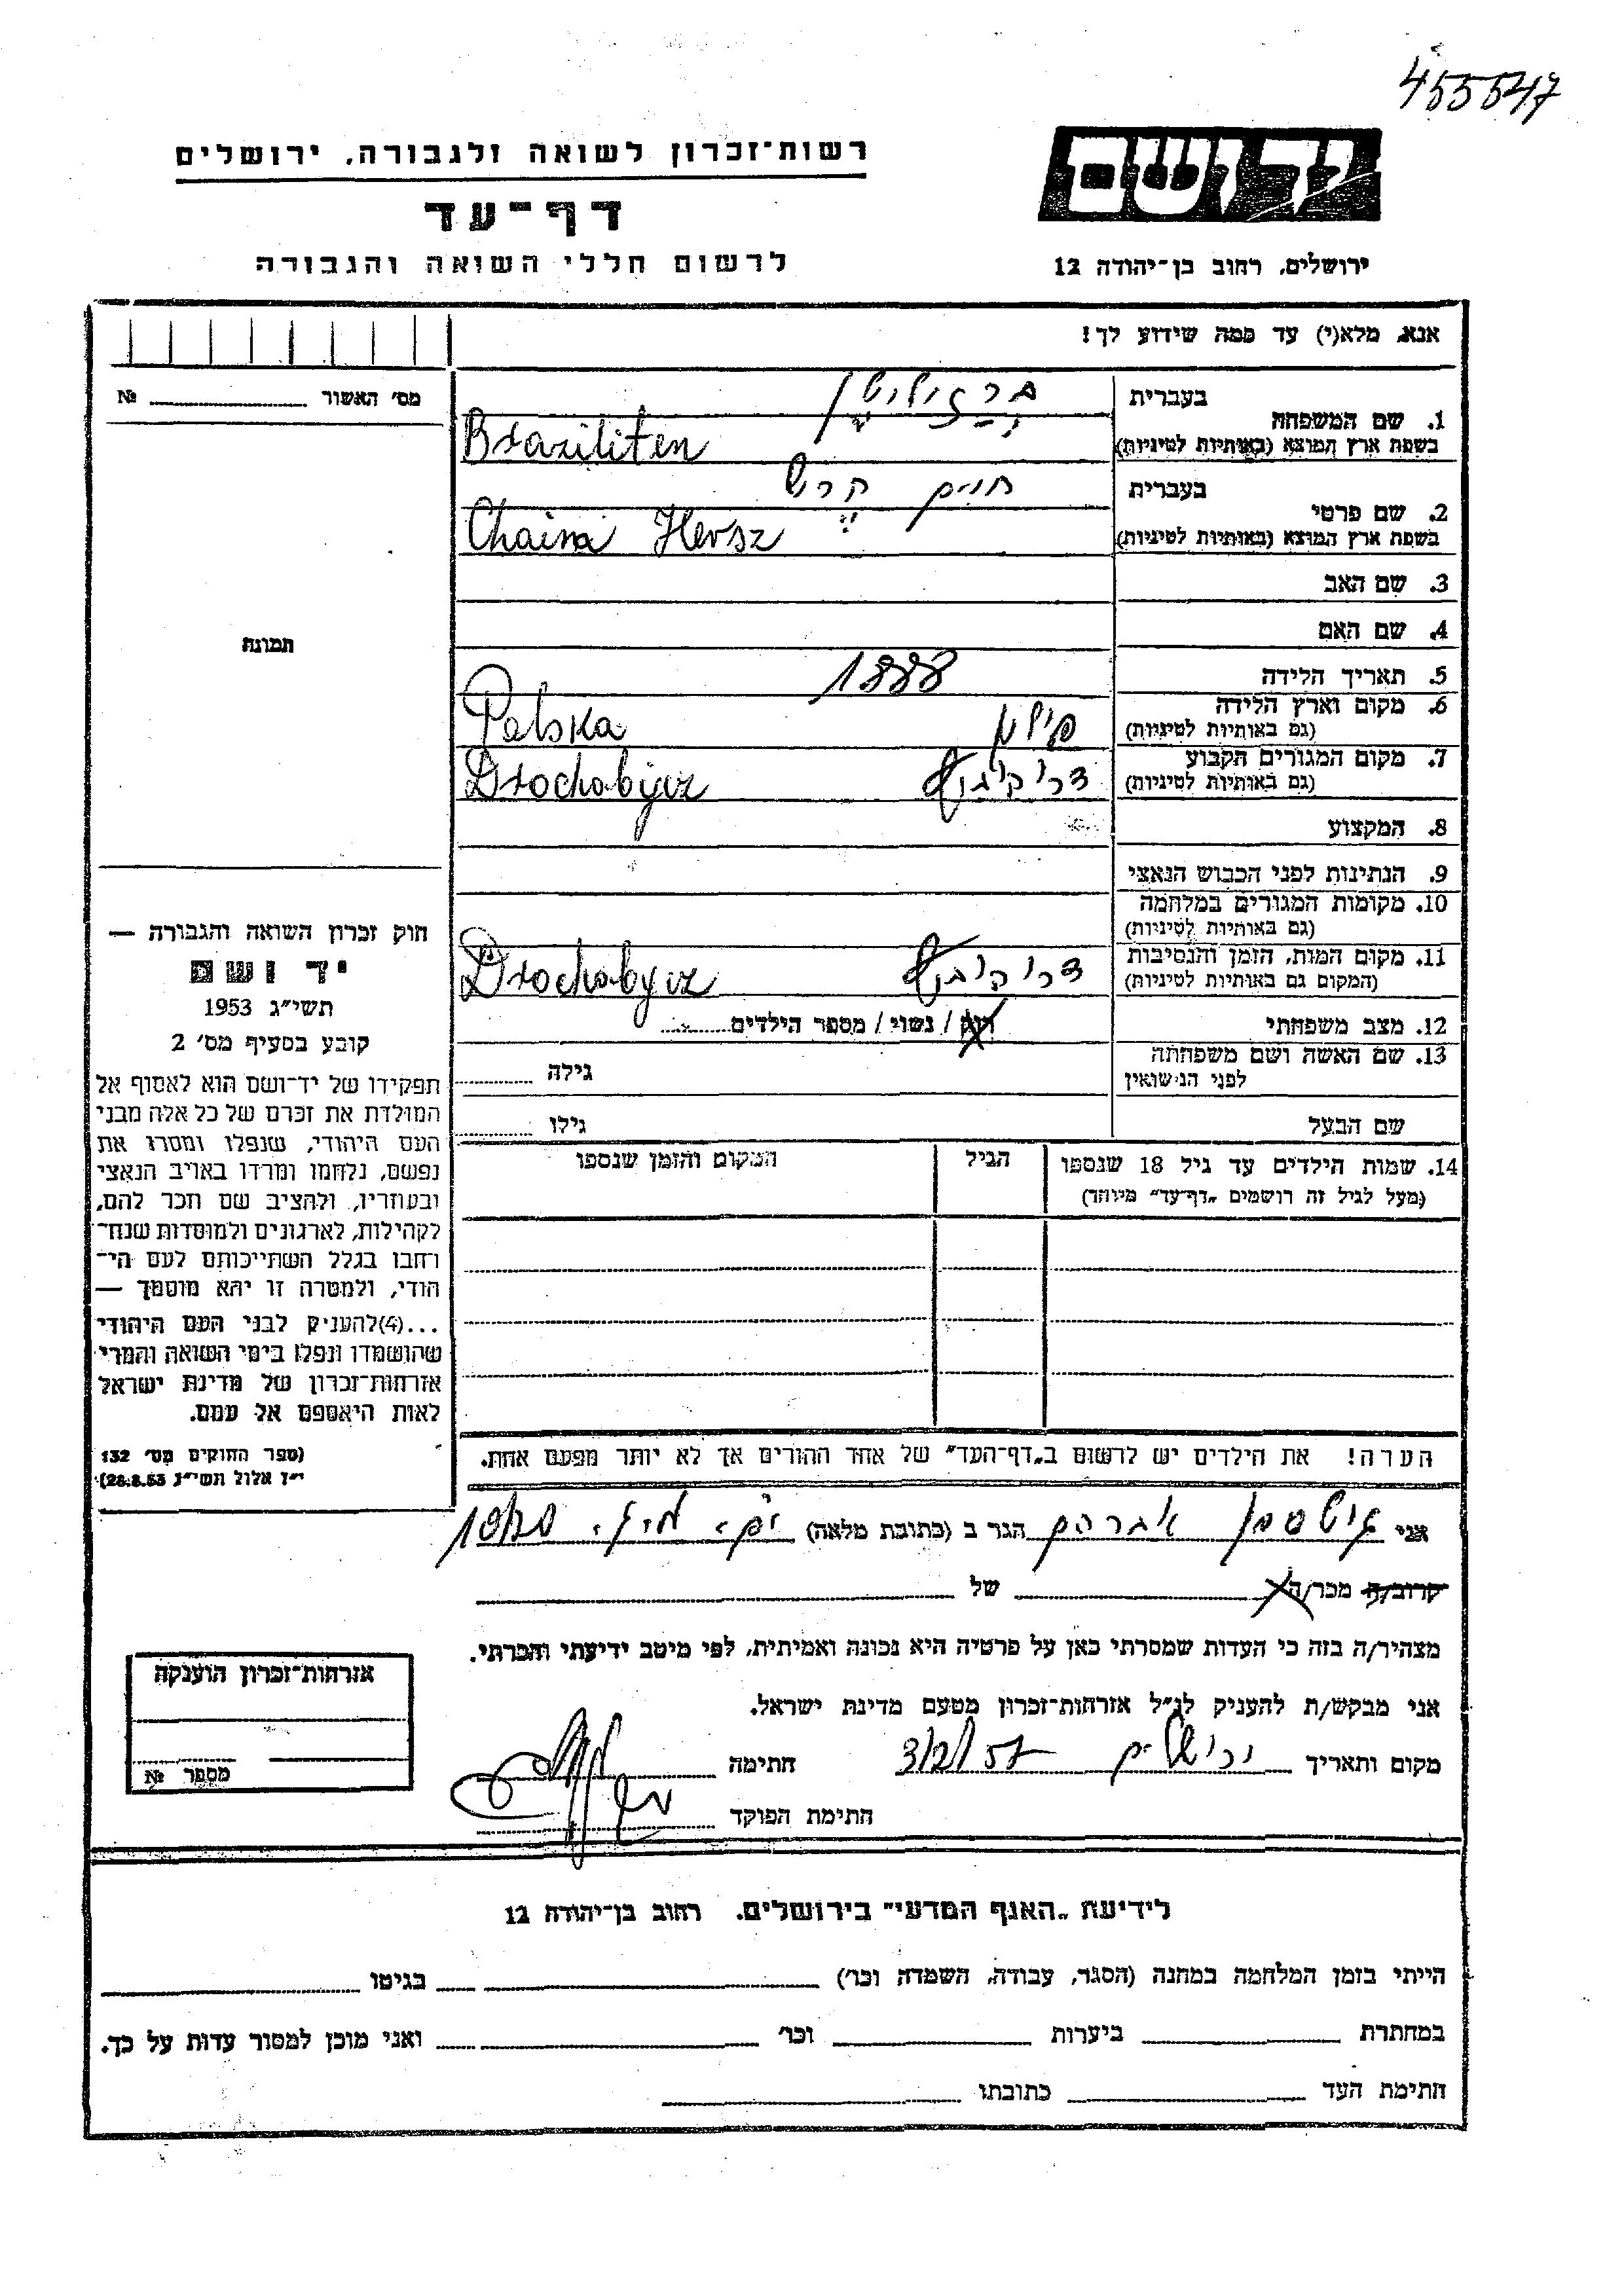 455547
רשות־זכרון לשואה ולגבורה, ירושלים
יד ושם
דף־עד
לרשום חללי השואה והגבורה
ירושלים, רחוב בן־יהודה 12
אנא, מלא(י) עד כמה שידוע לך!
מס' האשור №
בעברית
1. שם המשפחה
בשפת ארץ המוצא (באותיות לטיניות) Braziliten
בעברית חיים הרש
2. שם פרטי
בשפת ארץ המוצא (באותיות לטיניות) Chaim Hersz
3. שם האב
4. שם האם
תמונה
5. תאריך הלידה 1888
6. מקום וארץ הלידה פולין Polska
(גם באותיות לטיניות)
7. מקום המגורים הקבוע דרוהוביץ Drochobycz
(גם באותיות לטיניות)
8. המקצוע
9. הנתינות לפני הכבוש הנאצי
10. מקומות המגורים במלחמה
(גם באותיות לטיניות)
11. מקום המות, הזמן והנסיבות דרוהוביץ Drochobycz
(המקום גם באותיות לטיניות)
12. מצב משפחתי רווק / נשוי / מספר הילדים
13. שם האשה ושם משפחתה גילה
לפני הנישואין
שם הבעל גילו
14. שמות הילדים עד גיל 18 שנספו הגיל המקום והזמן שנספו
(מעל לגיל זה רושמים „דף־עד" מיוחד)
חוק זכרון השואה והגבורה —
יד ושם
תשי"ג 1953
קובע בסעיף מס' 2
תפקידו של יד־ושם הוא לאסוף אל
המולדת את זכרם של כל אלה מבני
העם היהודי, שנפלו ומסרו את
נפשם, נלחמו ומרדו באויב הנאצי
ובעוזריו, ולהציב שם וזכר להם,
לקהילות, לארגונים ולמוסדות שנח־
רחבו בגלל השתייכותם לעם הי־
הודי, ולמטרה זו יהא מוסמך —
...(4)להעניק לבני העם היהודי
שהושמדו ונפלו בימי השואה והמרי
אזרחות־זכרון של מדינת ישראל
לאות היאספם אל עמם.
(ספר החוקים מס' 132
י"ז אלול תשי"ג 28.8.53)
הערה! את הילדים יש לרשום ב„דף־העד" של אחד ההורים אך לא יותר מפעם אחת.
אני אברהם הגר ב (כתובת מלאה)
קרוב/ה מכר/ה של
מצהיר/ה בזה כי העדות שמסרתי כאן על פרטיה היא נכונה ואמיתית, לפי מיטב ידיעתי והכרתי.
אני מבקש/ת להעניק לנ"ל אזרחות־זכרון מטעם מדינת ישראל.
מקום ותאריך ירושלים חתימה
חתימת הפוקד
אזרחות־זכרון הוענקה
מספר №
לידיעת „האגף המדעי" בירושלים, רחוב בן־יהודה 12
הייתי בזמן המלחמה במחנה (הסגר, עבודה, השמדה וכו') בגיטו
במחתרת ביערות וכו' ואני מוכן למסור עדות על כך.
חתימת העד כתובתו